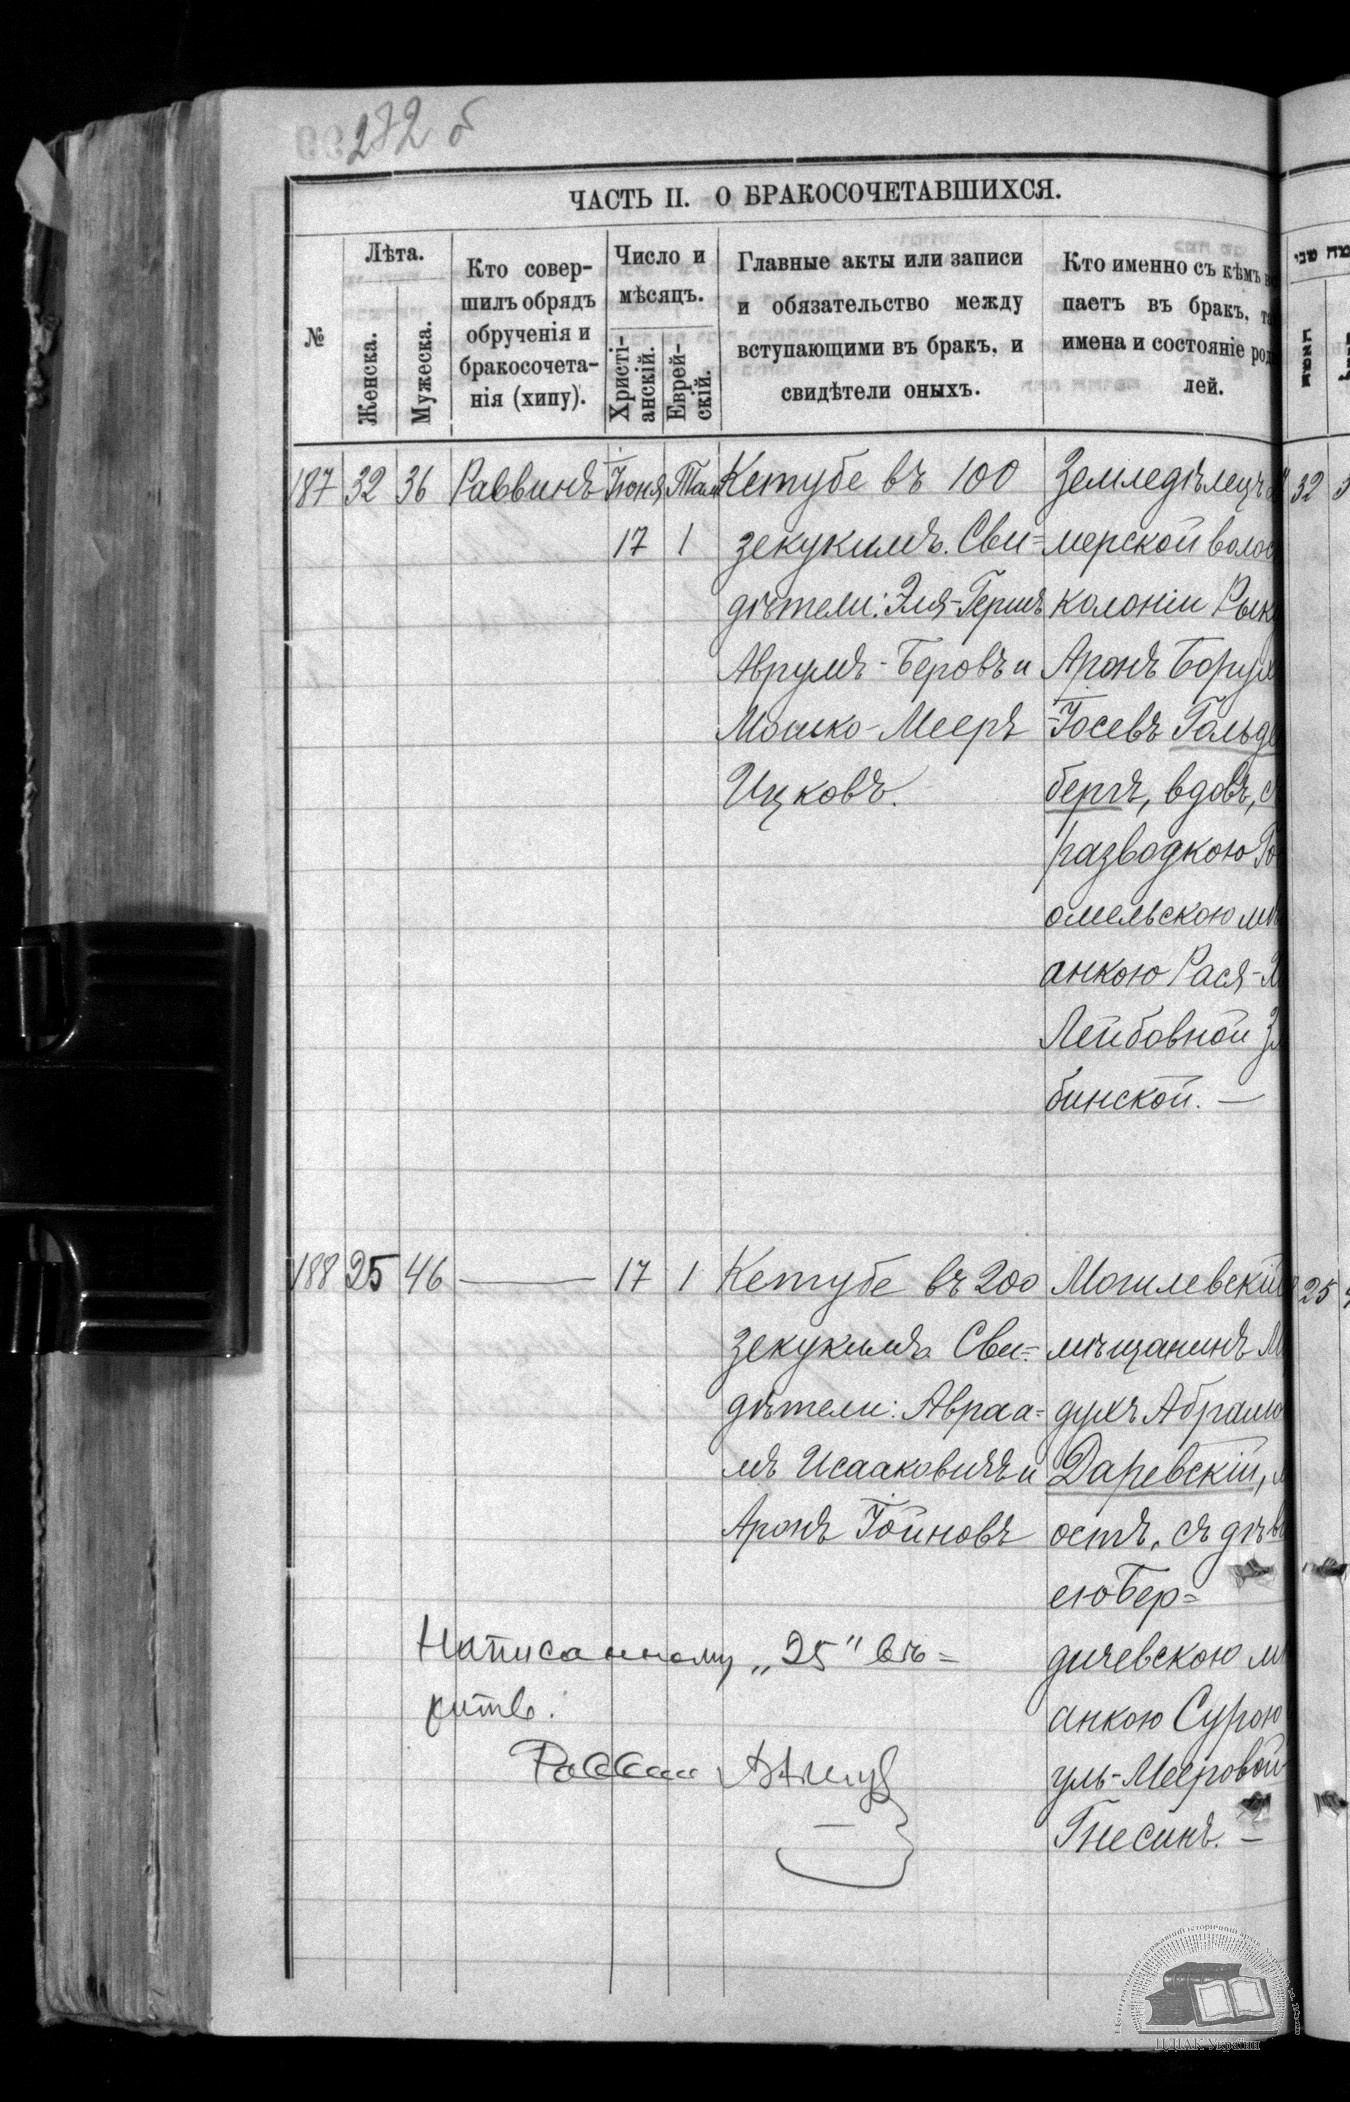 282 б
ЧАСТЬ II. О БРАКОСОЧЕТАВШИХСЯ.
№
Лѣта.
Женска.
Мужеска.
Кто совер-
шилъ обрядъ
обрученія и
бракосочета-
нія (хипу).
Число и
мѣсяцъ.
Христі-
анскій.
Еврей-
скій.
Главные акты или записи
и обязательство между
вступающими въ бракъ, и
свидѣтели оныхъ.
Кто именно съ кѣмъ
паетъ въ бракъ,
имена и состояніе
лей.
187 32 36 Раввинъ Іюня Там
17 1
Кетубе въ 100
зекукимъ. Сви=
дѣтели: Эля-Гершъ
Аврумъ-Беровъ и
Мошко-Мееръ
Ицковъ.
Земледѣлецъ
мерской волос
колоніи
Аронъ Борух
-Іосевъ Гольд
бергъ, вдов,
разводкою Го
омельскою мѣ
анкою Рася-
Лейбовной
бинской. —
32
188 25 46 — 17 1
Кетубе въ 200
зекукимъ. Сви=
дѣтели: Авраа=
мъ Исааковичъ и
Аронъ Іойновъ
Могилевскій
мѣщанинъ М
духъ Абрамо
Даревскій,
остъ, съ дѣв
ею Бер=
дичевскою м
анкою Сурою
уль-Мееровой
Гнесинъ. —
25
Написанному „25" вѣ=
рить.
Раввин
ЦДІАК України